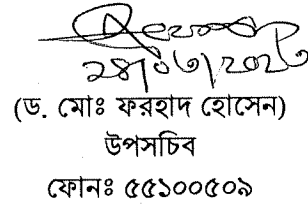 ২৪/০৩/২০২৩
(ড. মোঃ ফরহাদ হোসেন)
উপসচিব
ফোনঃ ৫৫১০০৫০৯